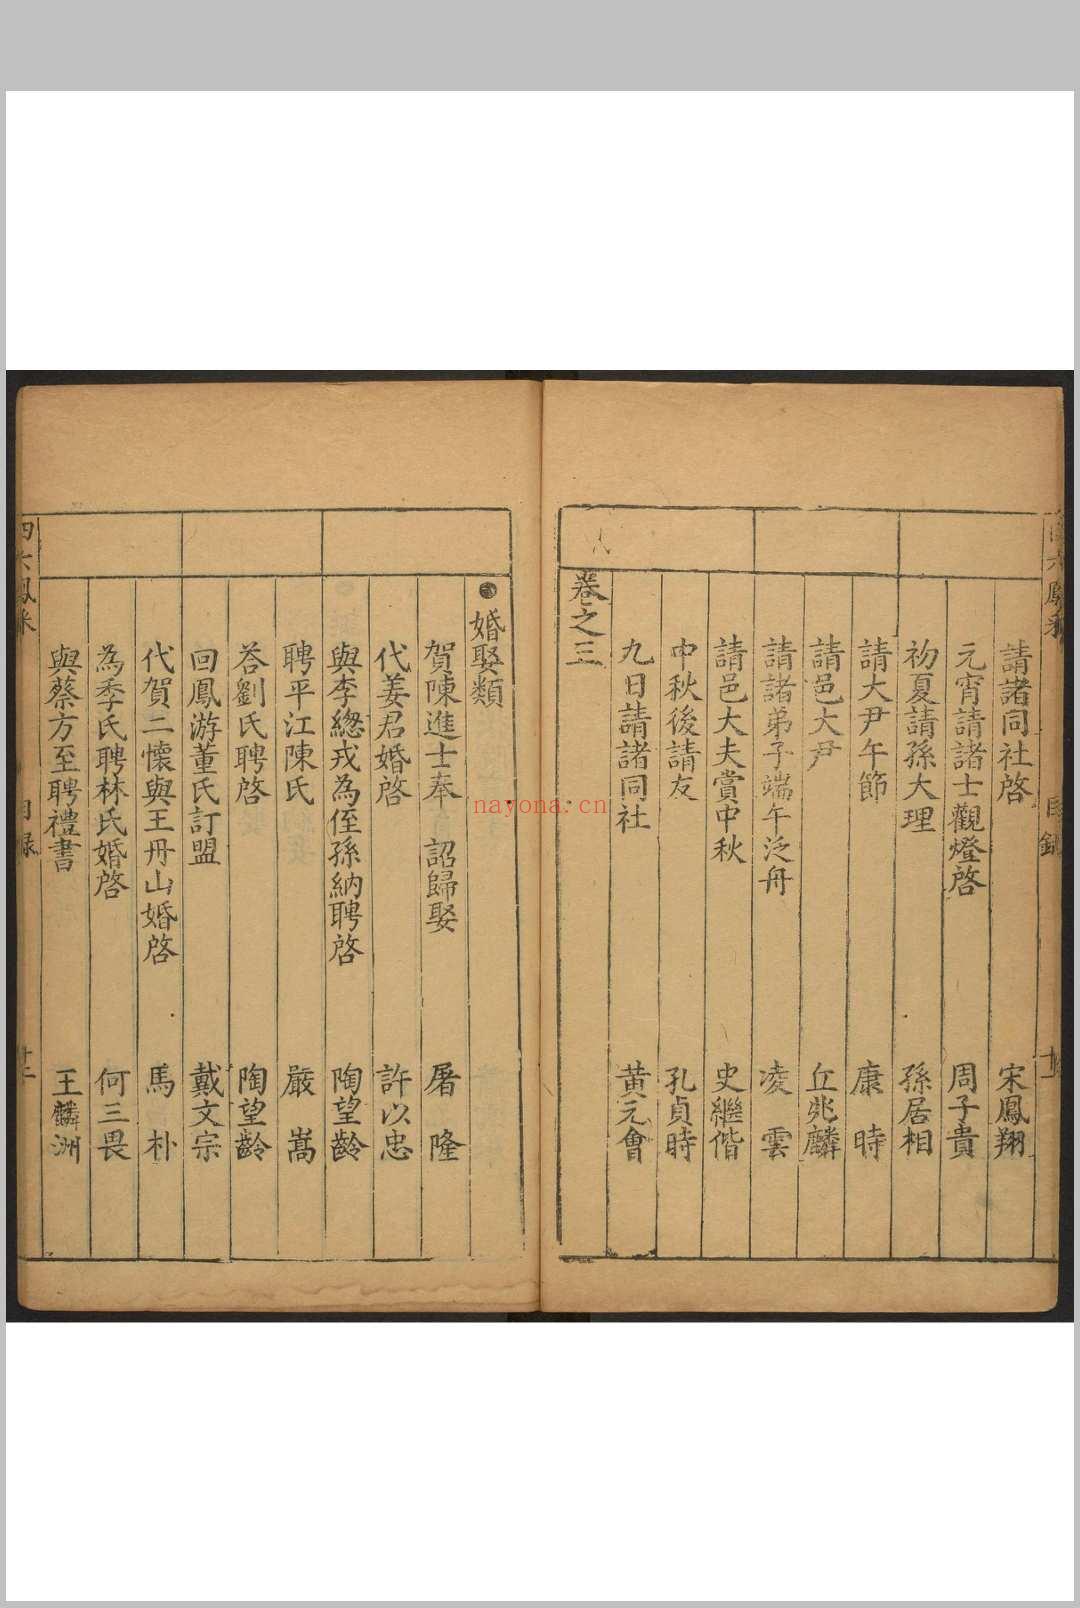 請諸同社啓 宋鳳翔
元宵請諸士觀燈啓 周子貴
初夏請孫大理 孫居相
請大尹午節 康時
請邑大尹 丘兆麟
請諸弟子端午泛舟 凌雲
請邑大夫賞中秋 史繼偕
中秋後請友 孔貞時
九日請諸同社 黃元會
卷之三
婚娶類
賀陳進士奉 詔歸娶 屠隆
代姜君婚啓 許以忠
與李總戎為侄孫納聘啓 陶望齡
聘平江陳氏 嚴嵩
答劉氏聘啓 陶望齡
回鳳游董氏訂盟 戴文宗
代賀二懷與王丹山婚啓 馬朴
為季氏聘林氏婚啓 何三畏
與蔡方至聘禮書 王麟洲
四六鳳采 目錄
nayona.cn